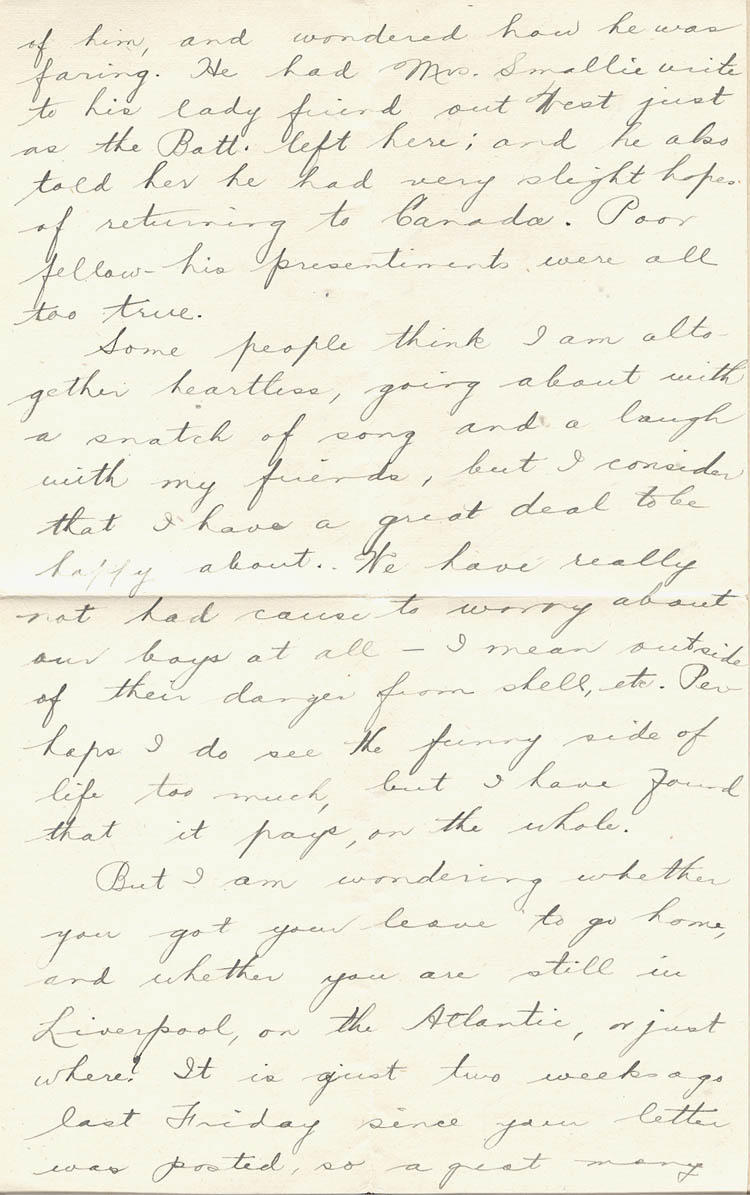 of him, and wondered how he was
faring. He had Mrs. Smallie write
to his lady friend out West just
as the Batt. left here; and he also
told her he had very slight hopes
of returning to Canada. Poor
fellow - his presentiments were all
too true.
Some people think I am alto-
gether heartless, going about with
a snatch of song and a laugh
with my friends, but I consider
that I have a great deal to be
happy about.. We have really
not had cause to worry about
our boys at all - I mean outside
of their danger from shell, etc. Per
haps I do see the funny side of
life too much, but I have found
that it pays, on the whole.
But I am wondering whether
you got your leave to go home,
and whether you are still in
Liverpool, on the Atlantic, or just
where! It is just two weeks ago
last Friday since your letter
was posted, so a great many